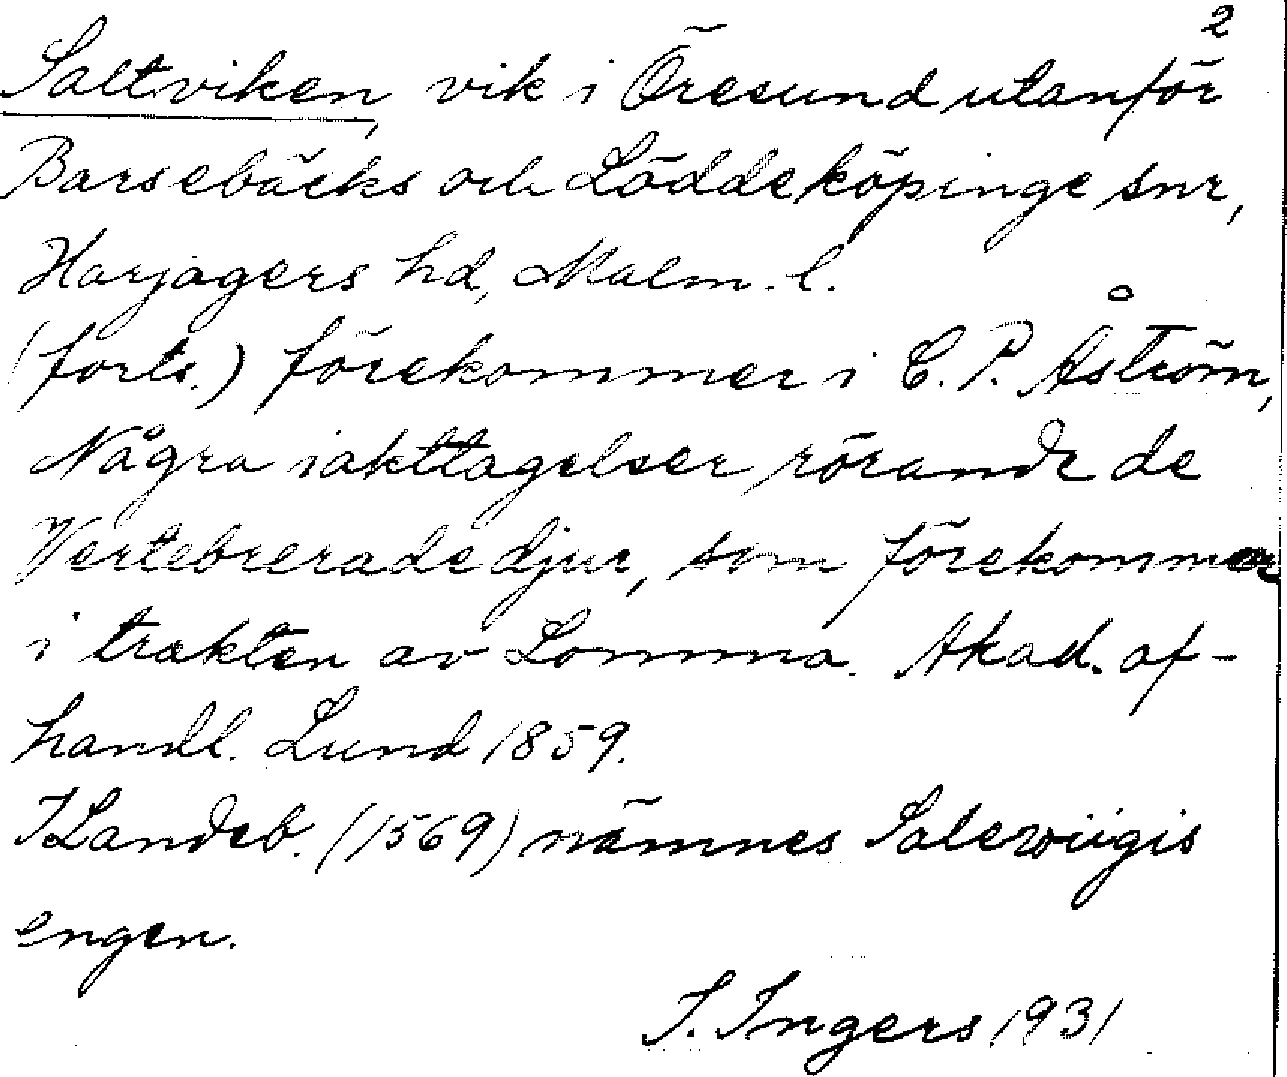 2
Saltviken, vik i Öresund utanför
Barsebäcks och Löddeköpinge snr,
Harjagers hd, Malm. l.
(forts.) förekommer i C. P. Åström,
Några iakttagelser rörande de
Vertebrerade djur, som förekommer
i trakten av Lomma. Akad. af-
handl. Lund 1859.
I Landeb. (1569) nämnes Salewiigis
engen.
I. Ingers 1931